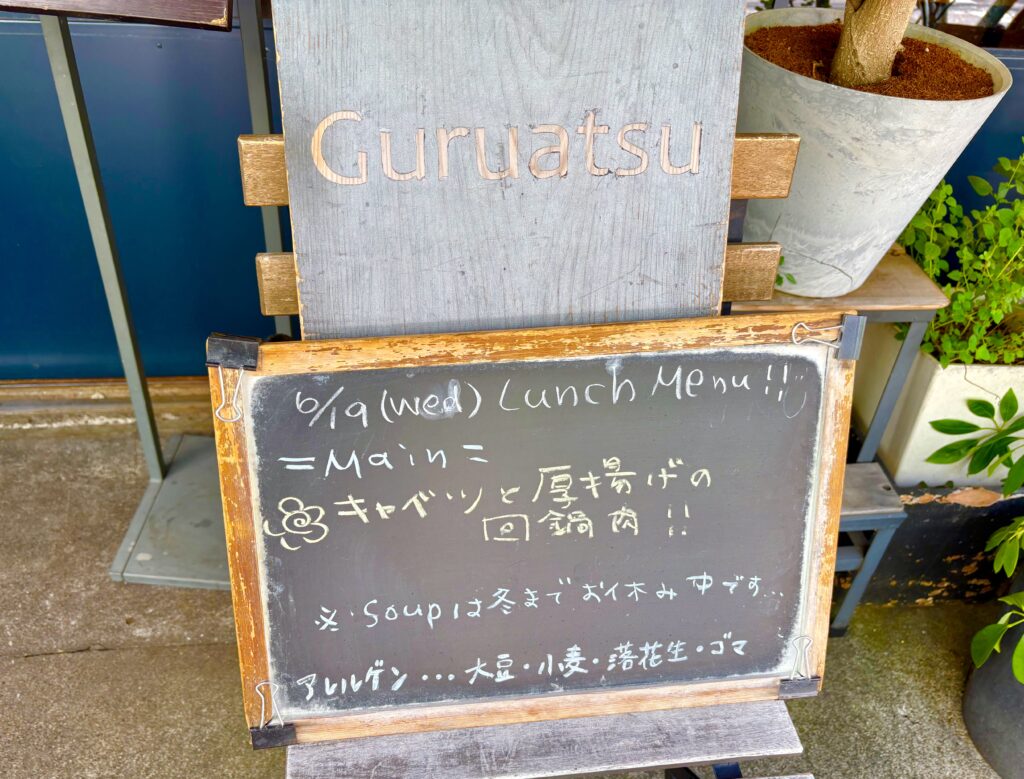 Guruatsu
6/19(Wed) Lunch Menu!!
=Main=
キャベツと厚揚げの
回鍋肉!!
※・Soupは冬までお休み中です...
アレルゲン・・・大豆・小麦・落花生・ゴマ